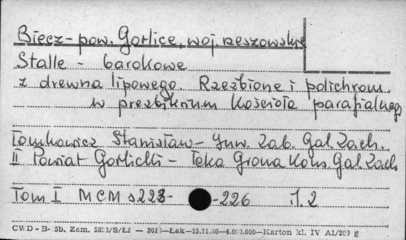 Biecz - pow. Gorlice, woj. rzeszowskie
Stalle - barokowe
z drewna lipowego. Rzeźbione i polichrom.
w prezbiterium Kościoła parafialnego
Tomkowicz Stanisław - Inw. Zab. Gal. Zach.
II Powiat Gorlicki - Teka Grona Kon. Gal. Zach
Tom I MCM s 223- -226 1.2
CWD - B- 5b. Zam. /S/Łż — Łak— —Karton kl. IV A1/203 g